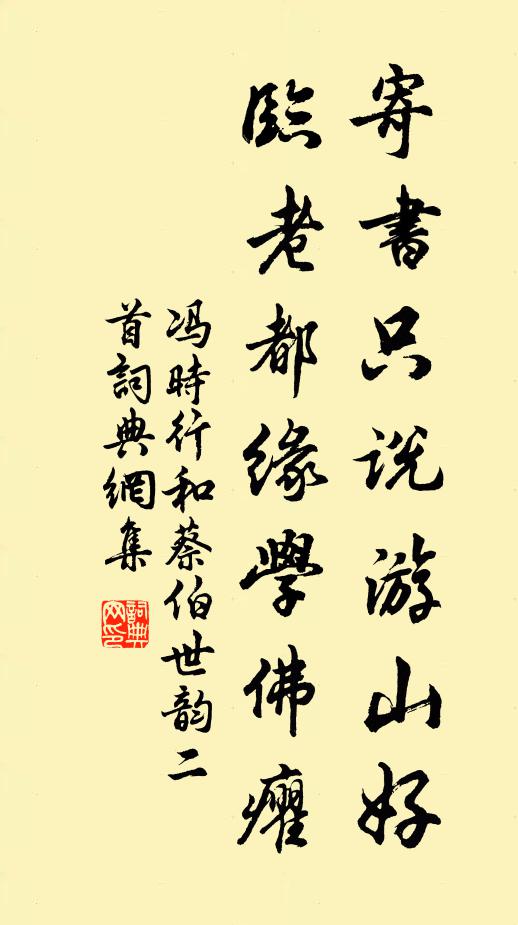 寄書只説游山好
臨老都緣學佛癯
冯時行和蔡伯世韵二
首詞典網集
詞典网印